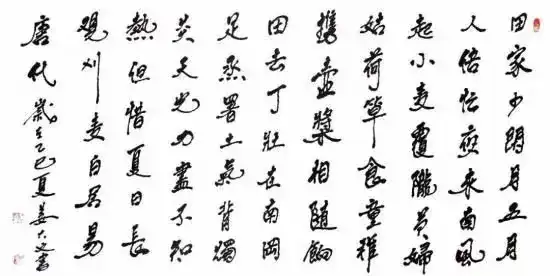 田家少閒月五月
人倍忙夜来南風
起小麦覆隴黄婦
姑荷簞食童稚
攜壺漿相随餉
田去丁壯在南岡
足蒸暑土氣背燭
炎天光力盡不知
熱但惜夏日長
觀刈麦白居易
唐代歲在乙巳夏姜書